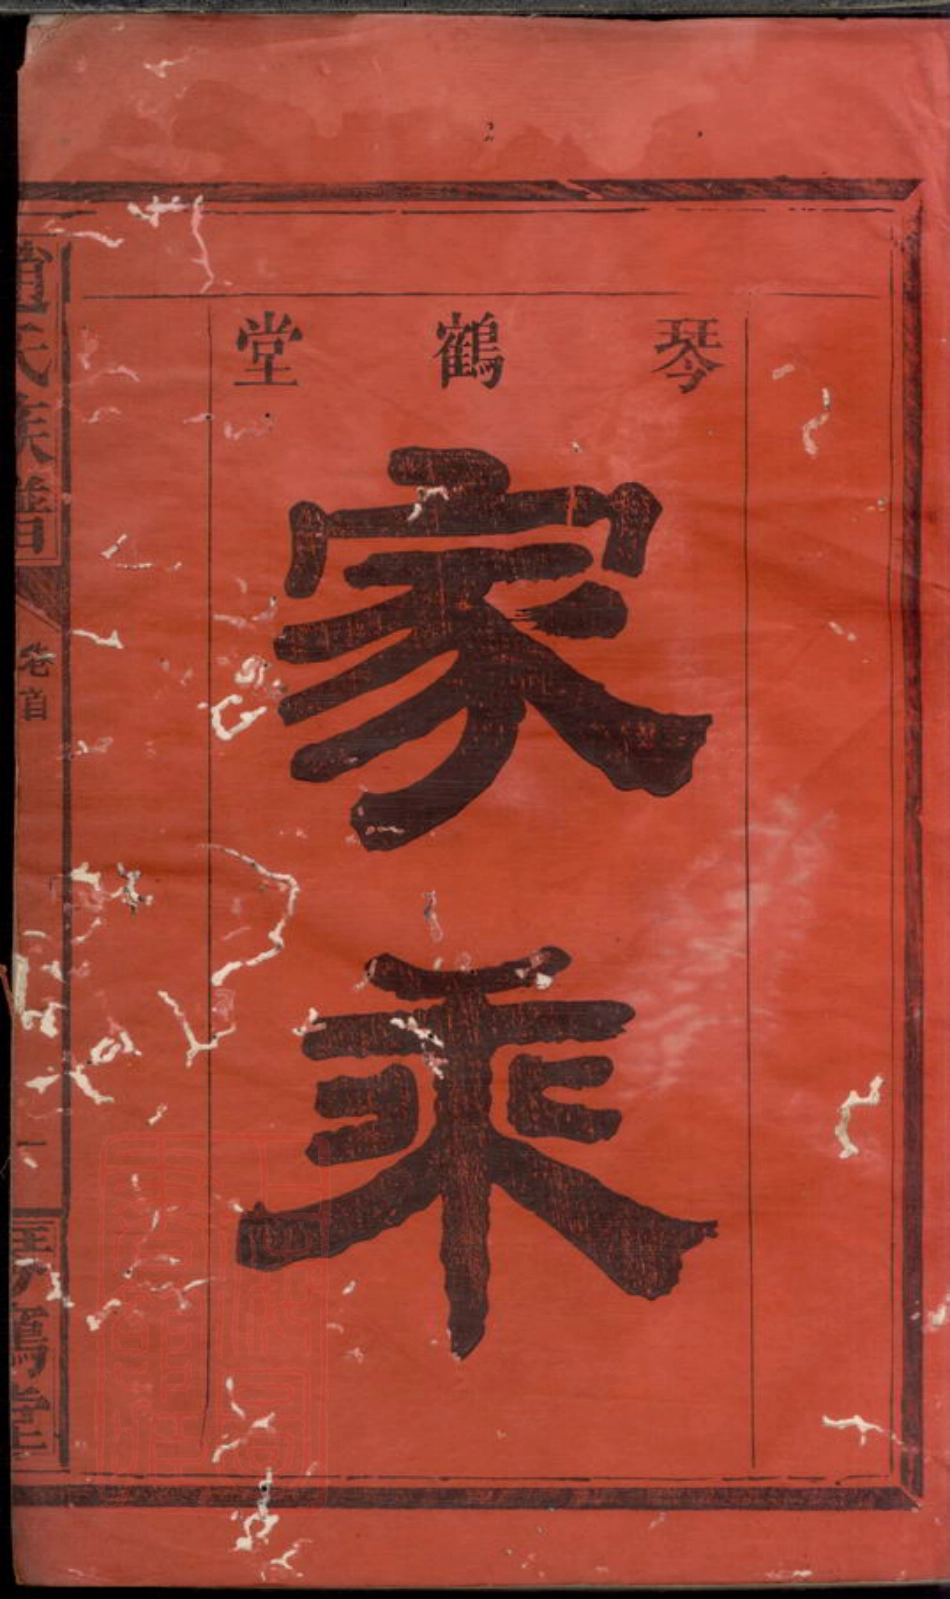 琴鶴堂
家乘
趙氏族譜
卷首
一
琴鶴堂